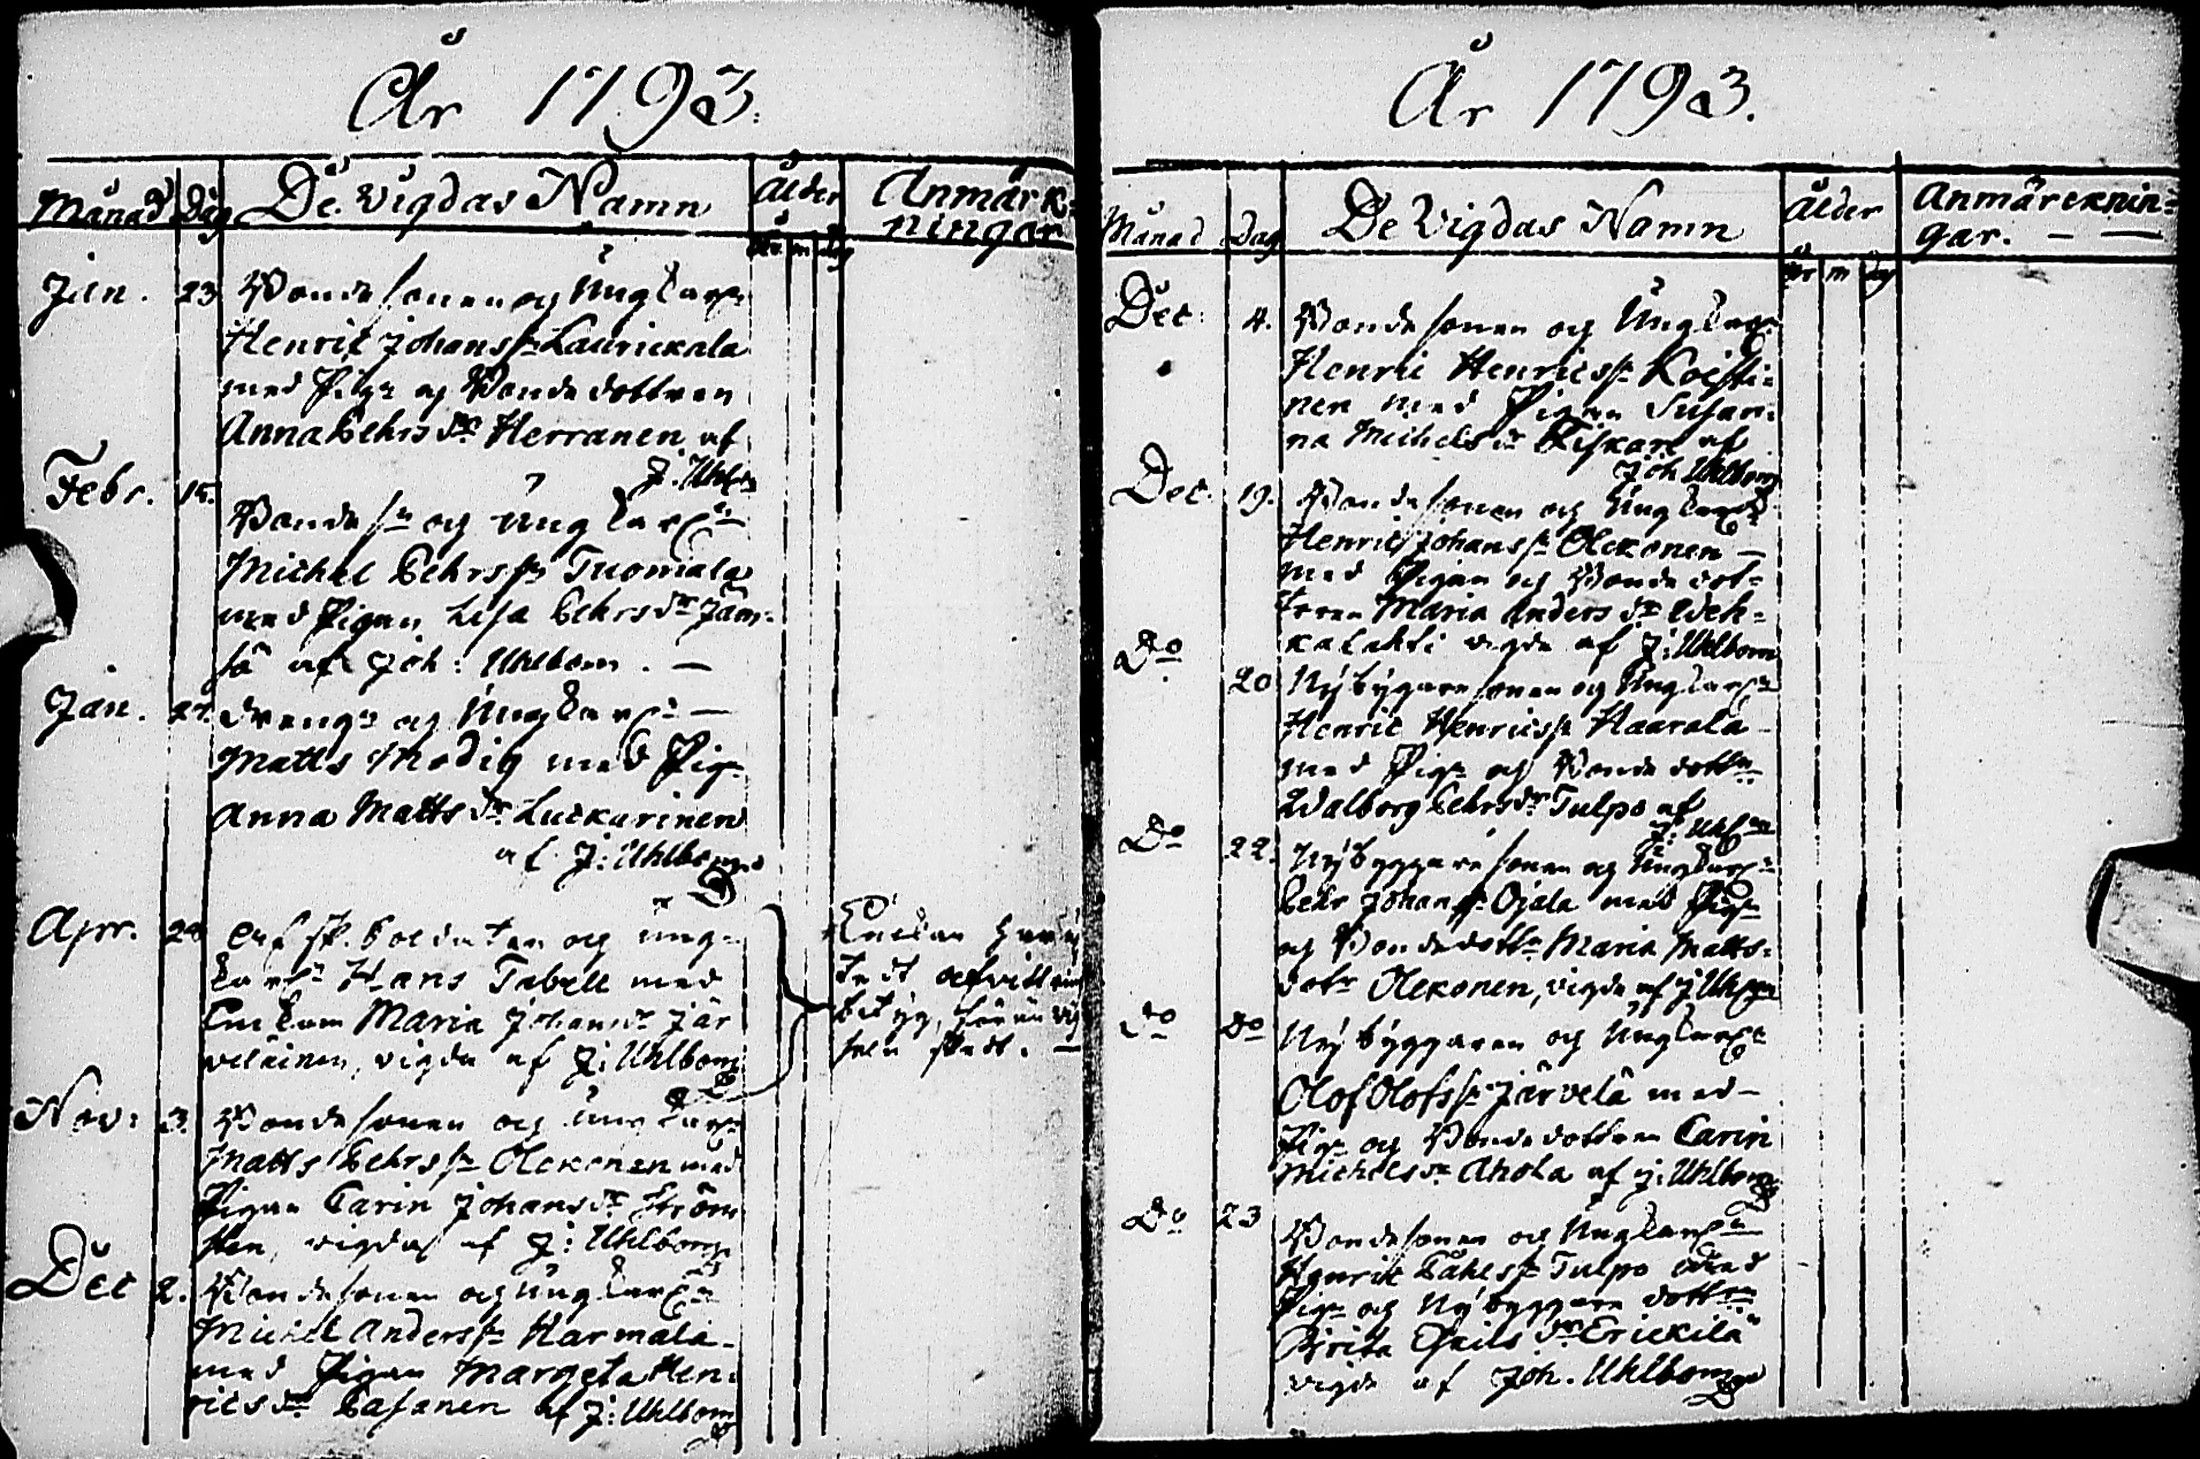 År 1793.
Månad Dag De Vigdas Namn Ålder Anmärk-
ningar
år m dg
Jan. 23 Bondesonen och Ungkarln
Henric Johansson Laurickala
med Pigan och Bondedottren
Anna Pehrsdr Herranen af
J. Uhlbom
Febr. 15. Bondesn och Ungkarln
Michel Pehrsson Tuomala
med Pigan Lisa Pehrsdr Jäm-
sä af Joh: Uhlbom. —
Jan. 27. Drengn och Ungkarln —
Matts Modig med Pign
Anna Mattsdr Luckarinen
af J: Uhlbom
Apr. Afsk. Soldaten och ung-
karln Hans Tabell med
Enkan Maria Johansdr Jär
veläinen, vigde af J: Uhlbom
Enkan
tedt afvittrings
betyg, förän vig
seln skedt. —
Nov: 3. Bondesonen och Ungkarln
Matts Pehrsson Olckonen med
Pigan Carin Johansdr Ström
sten, vigdes af J: Uhlbom
Dec 2. Bondesonen och Ungkarln
Michel Andersson Harmala
med Pigan Margeta Hen-
ricsdr Pasanen af J: Uhlbom
År 1793.
Månad Dag De Vigdas Namn Ålder Anmärcknin-
gar. — —
år m dg
Dec: 4. Bondesonen och Ungkarln
Henric Henricsson Koisti-
nen med Pigan Susan-
na Michelsdr Fiskare af
Joh Uhlbom
Dec. 19. Bondesonen och Ungkarln
Henric Johansson Olckonen —
med Pigan och Bondedot-
tren Maria Andersdr Weh-
kalahti vigde af J: Uhlbom
Do 20 Nybygaresonen och Ungkarln
Henric Henricsson Haarala
med Pign och Bondedottrn
Walborg Pehrsdr Tulpo af
J: Uhlbom
Do 22. Nybyggaresonen och Ungkarln
Pehr Johansson Ojala med Pign
och Bondedottrn Maria Matts-
dotr Olckonen, vigde af J Uhlbom
Do Do Nybyggaren och Ungkarln
Olof Olofsson Järvelä med —
Pign och Bondedottren Carin
Michelsdr Ahola af J: Uhlbom
Do 23 Bondesonen och Ungkarln
Henric Påhlsson Tulpo med
Pign och Nybyggare dottrn
Brita Esailsdr Erickilä
vigde af Joh. Uhlbom